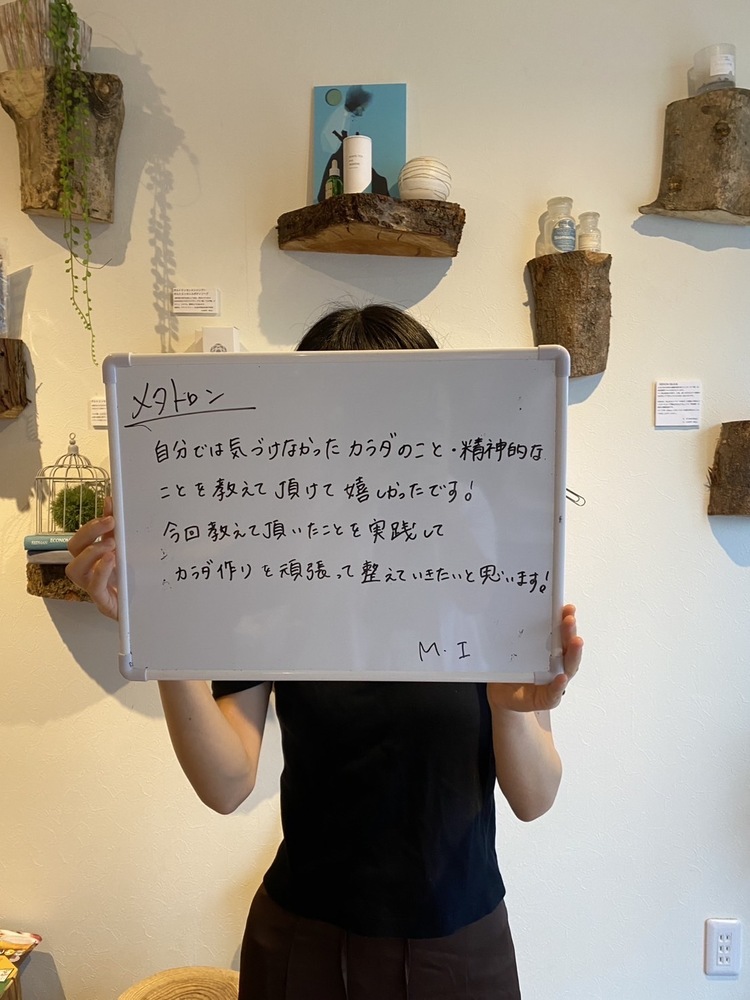 メタトロン
自分では気づけなかったカラダのこと・精神的な
ことを教えて頂けて嬉しかったです!
今回教えて頂いたことを実践して
カラダ作りを頑張って整えていきたいと思います!
M.I